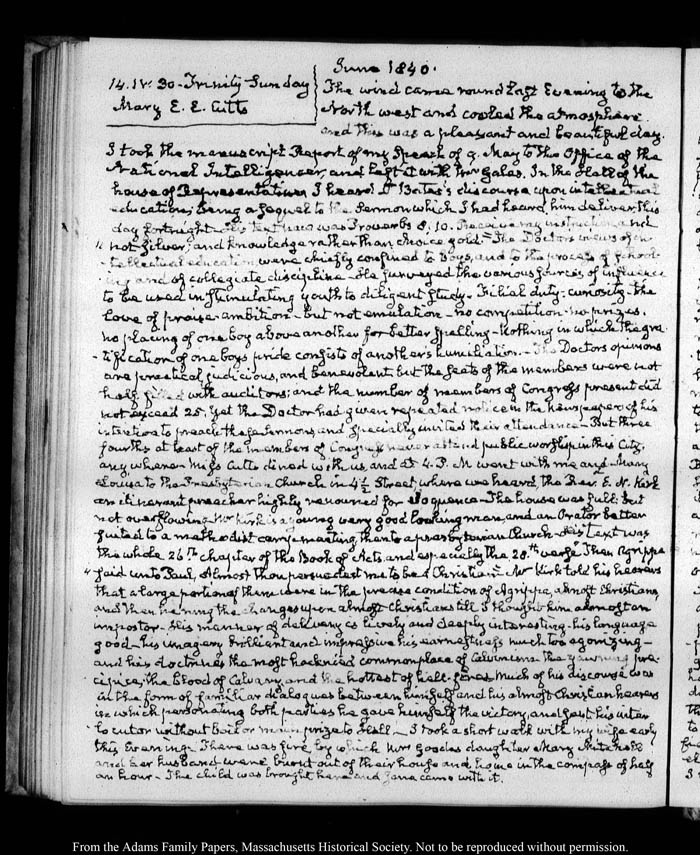 June 1840.
14. IV. 30. Trinity Sunday
Mary E. E. Cutts
The wind came round last Evening to the
North west and cooled the atmosphere
and this was a pleasant and beautiful day.
I took the manuscript Report of my Speech of 9. May to the Office of the
National Intelligencer, and left it with Mr Gales. In the Hall of the
house of Representatives I heard Dr Bates's discourse upon intellectual
education; being a sequel to the Sermon which I had heard him deliver this
day fortnight. His text now was Proverbs 8. 10. Receive my instruction and
not silver; and knowledge rather than choice gold. The Doctors views of in-
tellectual education were chiefly confined to boys, and to the process of school-
ing and of collegiate discipline. He surveyed the various sources of influence
to be used in stimulating youth to diligent study. Filial duty. curiosity. the
love of praise. ambition. but not emulation. no competition. no prizes.
no placing of one boy above another for better spelling. Nothing in which the gra-
tification of one boy's pride consists of another's humiliation. The Doctors opinions
are practical judicious, and benevolent but the seats of the members were not
half filled with auditors; and the number of members of Congress present did
not exceed 25. Yet the Doctor had given repeated notice in the newspaper of his
intention to preach these sermons, and specially invited their attendance. But three
fourths at least of the members of Congress never attend public worship in this City,
any where. Miss Cutts dined with us, and at 4. P. M went with me and Mary
Louisa to the Presbyterian Church in 4½ Street where we heard the Rev. E. N. Kirk
an itinerant preacher highly renowned for eloquence. The house was full: but
not overflowing. Mr Kirk is a young very good looking man, and an Orator better
suited to a methodist camp meeting than to a presbyterian Church. His Text was
the whole 26th chapter of the Book of Acts, and especially the 28.th verse. Then Agrippa
said unto Paul, Almost thou persuadest me to be a Christian. Mr Kirk told his hearers
that a large portion of them were in the precise condition of Agrippa, almost Christians,
and then ringing the changes upon almost Christians till I thought him almost an
impostor. His manner of delivery is lively and deeply interesting. his language
good. his imagery brilliant and impressive his earnestness much too agonizing
and his doctrines the most hacknied commonplace of Calvinism. the yawning pre-
cipice, the blood of Calvary and the hottest of hell-fires. Much of his discourse was
in the form of familiar dialogues between himself and his almost Christian hearers
in which personating both parties he gave himself the victory, and sent his inter-
locutor without bail or mainprize to Hell. I took a short walk with my wife early
this Evening. There was fire, by which Mrs daughter Mary
and her husband were burnt out of their house and home in the compass of half
an hour. The child was brought here and Jane came with it.
From the Adams Family Papers, Massachusetts Historical Society. Not to be reproduced without permission.